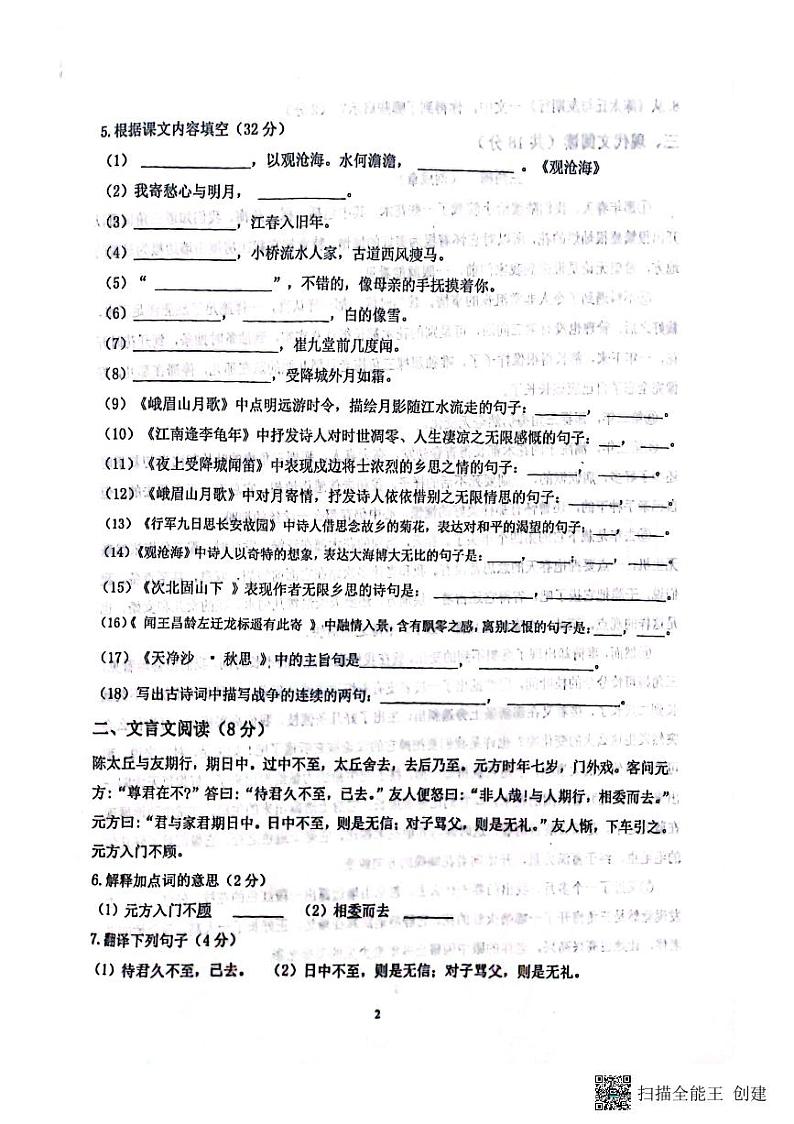 5.根据课文内容填空（32 分）
（1）____________，以观沧海。水何澹澹，__________。《观沧海》
（2）我寄愁心与明月，__________。
（3）____________，江春入旧年。
（4）____________，小桥流水人家，古道西风瘦马。
（5）“ ____________”，不错的，像母亲的手抚摸着你。
（6）__________，__________，白的像雪。
（7）____________，崔九堂前几度闻。
（8）____________，受降城外月如霜。
（9）《峨眉山月歌》中点明远游时令，描绘月影随江水流走的句子：______，______。
（10）《江南逢李龟年》中抒发诗人对时世凋零、人生凄凉之无限感慨的句子：______，____。
（11）《夜上受降城闻笛》中表现戍边将士浓烈的乡思之情的句子：______，______。
（12）《峨眉山月歌》中对月寄情，抒发诗人依依惜别之无限情思的句子：______，______。
（13）《行军九日思长安故园》中诗人借思念故乡的菊花，表达对和平的渴望的句子：______，______。
（14）《观沧海》中诗人以奇特的想象，表达大海博大无比的句子是：____，____；____，____。
（15）《次北固山下 》表现作者无限乡思的诗句是：________，________。
（16）《 闻王昌龄左迁龙标遥有此寄 》中融情入景，含有飘零之感，离别之恨的句子是：____，____。
（17）《天净沙 · 秋思 》中的主旨句是__________，__________。
（18）写出古诗词中描写战争的连续的两句：__________，__________。
二、文言文阅读（8 分）
陈太丘与友期行，期日中。过中不至，太丘舍去，去后乃至。元方时年七岁，门外戏。客问元
方：“尊君在不?”答曰：“待君久不至，已去。”友人便怒曰：“非人哉!与人期行，相委而去。”
元方曰：“君与家君期日中。日中不至，则是无信；对子骂父，则是无礼。”友人惭，下车引之。
元方入门不顾。
6.解释加点词的意思（2 分）
（1）元方入门不顾 ______ （2）相委而去 ______
7.翻译下列句子（4 分）
（1）待君久不至，已去。 （2）日中不至，则是无信；对子骂父，则是无礼。
2
扫描全能王 创建